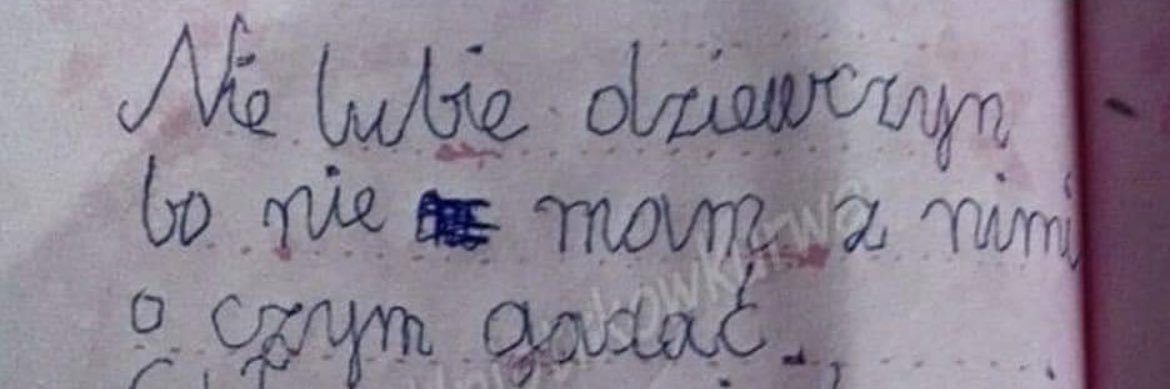 Nie lubie dziewczyn
bo nie mam z nimi
o czym gadać.